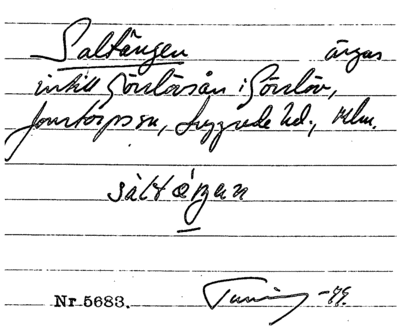 Saltängen ängas
intill Görslövsån i Görslöv,
Jonstorps sn, Luggude hd., Mlm.
sàltǽŋan
Nr 5683. -99.